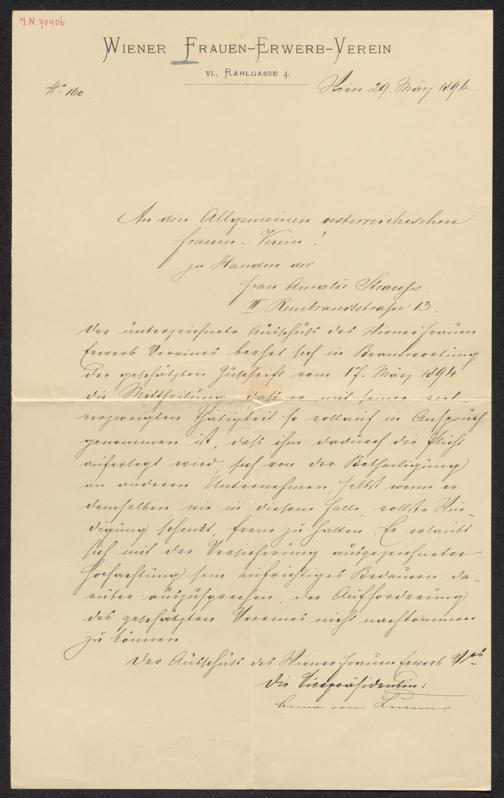 I.N. 70406
WIENER FRAUEN-ERWERB-VEREIN
VI., RAHLGASSE 4.
No 160.
Wien 29. März 1894.
An den Allgemeinen österreichischen
Frauen-Verein!
zu Handen der
Frau Amalie Strauss
II Rembrandtstraße 13.
Der unterzeichnete Ausschuß des Wiener Frauen
Erwerb Vereines beehrt sich in Beantwortung
der geschätzten Zuschrift vom 17. März 1894
die Mittheilung, daß er mit seiner viel
verzweigten Thätigkeit so vollauf in Anspruch
genommen ist, daß ihm dadurch die Pflicht
auferlegt wird, sich von der Betheiligung
an anderen Unternehmen, selbst wenn er
demselben, wie in diesem Falle, vollste Wür-
digung schenkt, ferne zu halten. Er erlaubt
sich mit der Versicherung ausgezeichneter
Hochachtung sein aufrichtiges Bedauern da-
rüber auszusprechen, der Aufforderung
des geschätzten Vereines nicht nachkommen
zu können.
Der Ausschuß des Wiener Frauen Erwerb Ver
Die Vicepräsidentin:
von